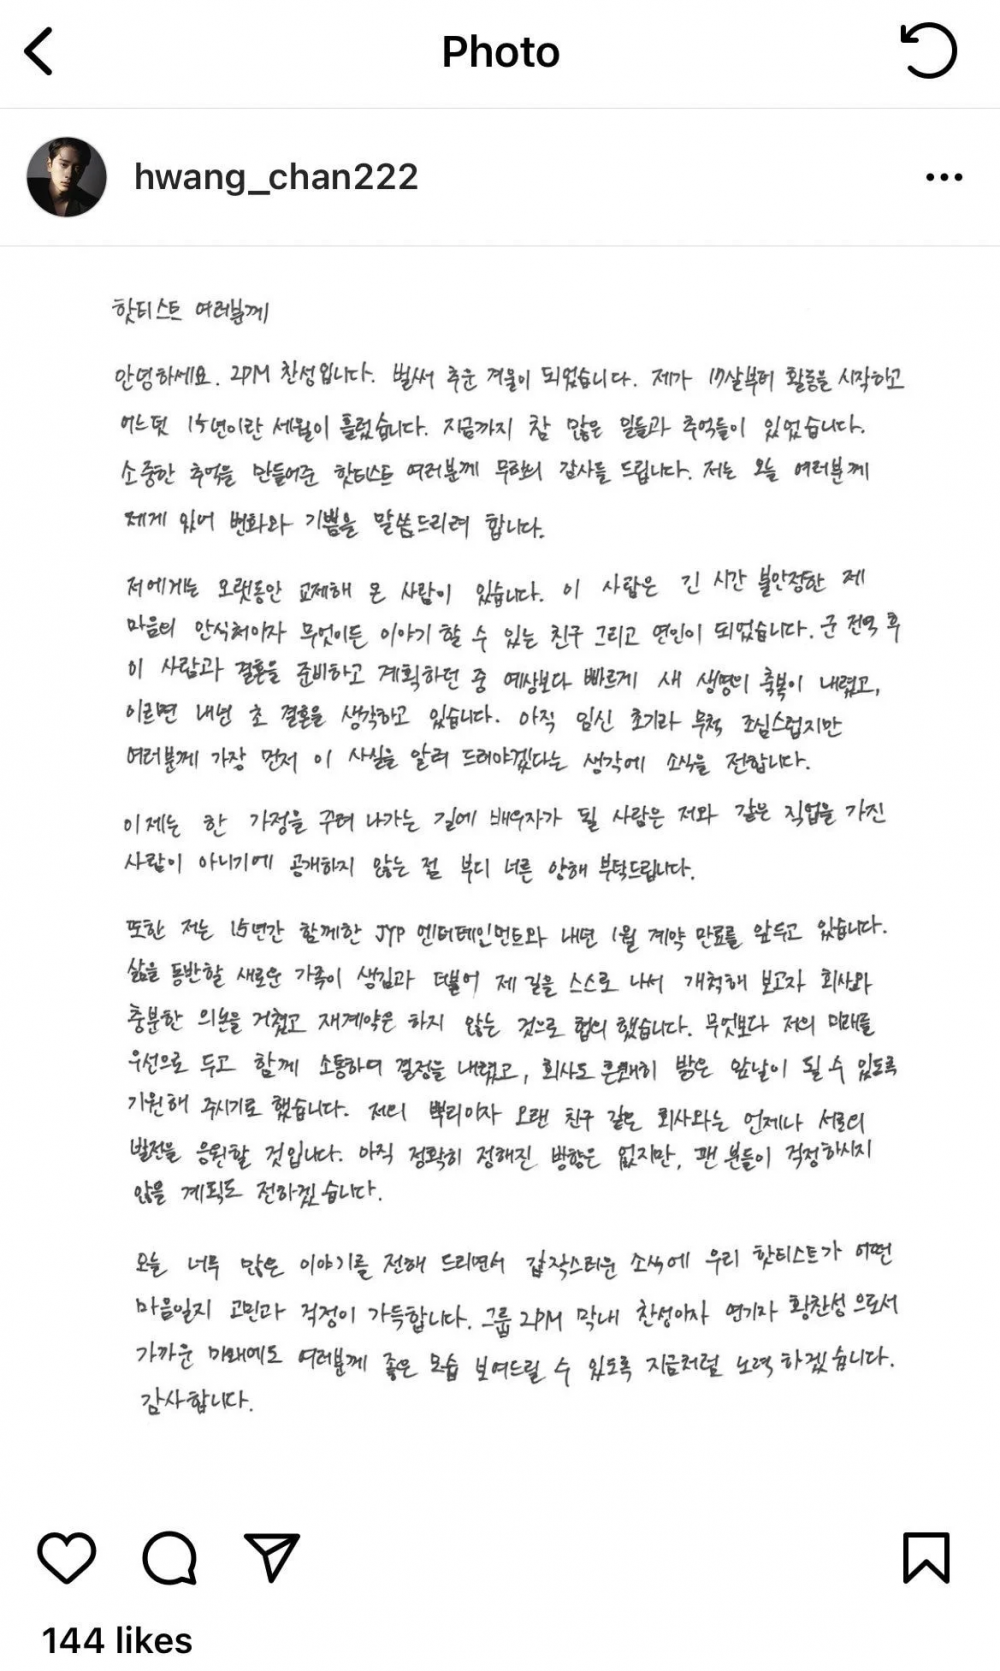 Photo
hwang_chan222
핫티스트 여러분께
안녕하세요. 2PM 찬성입니다. 벌써 추운 겨울이 되었습니다. 제가 17살부터 활동을 시작하고
어느덧 15년이란 세월이 흘렀습니다. 지금까지 참 많은 일들과 추억들이 있었습니다.
소중한 추억을 만들어준 핫티스트 여러분께 무한의 감사를 드립니다. 저는 오늘 여러분께
제게 있어 변화와 기쁨을 말씀드리려 합니다.
저에게는 오랫동안 교제해 온 사람이 있습니다. 이 사람은 긴 시간 불안정한 제
마음의 안식처이자 무엇이든 이야기 할 수 있는 친구 그리고 연인이 되었습니다. 군 전역 후
이 사람과 결혼을 준비하고 계획하던 중 예상보다 빠르게 새 생명의 축복이 내렸고,
이르면 내년 초 결혼을 생각하고 있습니다. 아직 임신 초기라 무척 조심스럽지만
여러분께 가장 먼저 이 사실을 알려 드려야겠다는 생각에 소식을 전합니다.
이제는 한 가정을 꾸려 나가는 길에 배우자가 될 사람은 저와 같은 직업을 가진
사람이 아니기에 공개하지 않는 점 부디 너른 양해 부탁드립니다.
또한 저는 15년간 함께한 JYP 엔터테인먼트와 내년 1월 계약 만료를 앞두고 있습니다.
삶을 동반할 새로운 가족이 생김과 더불어 제 길을 스스로 나서 개척해 보고자 회사와
충분한 의논을 거쳤고 재계약은 하지 않는 것으로 협의 했습니다. 무엇보다 저의 미래를
우선으로 두고 함께 소통하며 결정을 내렸고, 회사도 흔쾌히 밝은 앞날이 될 수 있도록
기원해 주시기로 했습니다. 저의 뿌리이자 오랜 친구 같은 회사와는 언제나 서로의
발전을 응원할 것입니다. 아직 정확히 정해진 방향은 없지만, 팬 분들이 걱정하시지
않을 계획도 전하겠습니다.
오늘 너무 많은 이야기를 전해 드리면서 갑작스러운 소식에 우리 핫티스트가 어떤
마음일지 고민과 걱정이 가득합니다. 그룹 2PM 막내 찬성이자 연기자 황찬성 으로서
가까운 미래에도 여러분께 좋은 모습 보여드릴 수 있도록 지금처럼 노력 하겠습니다.
감사합니다.
144 likes